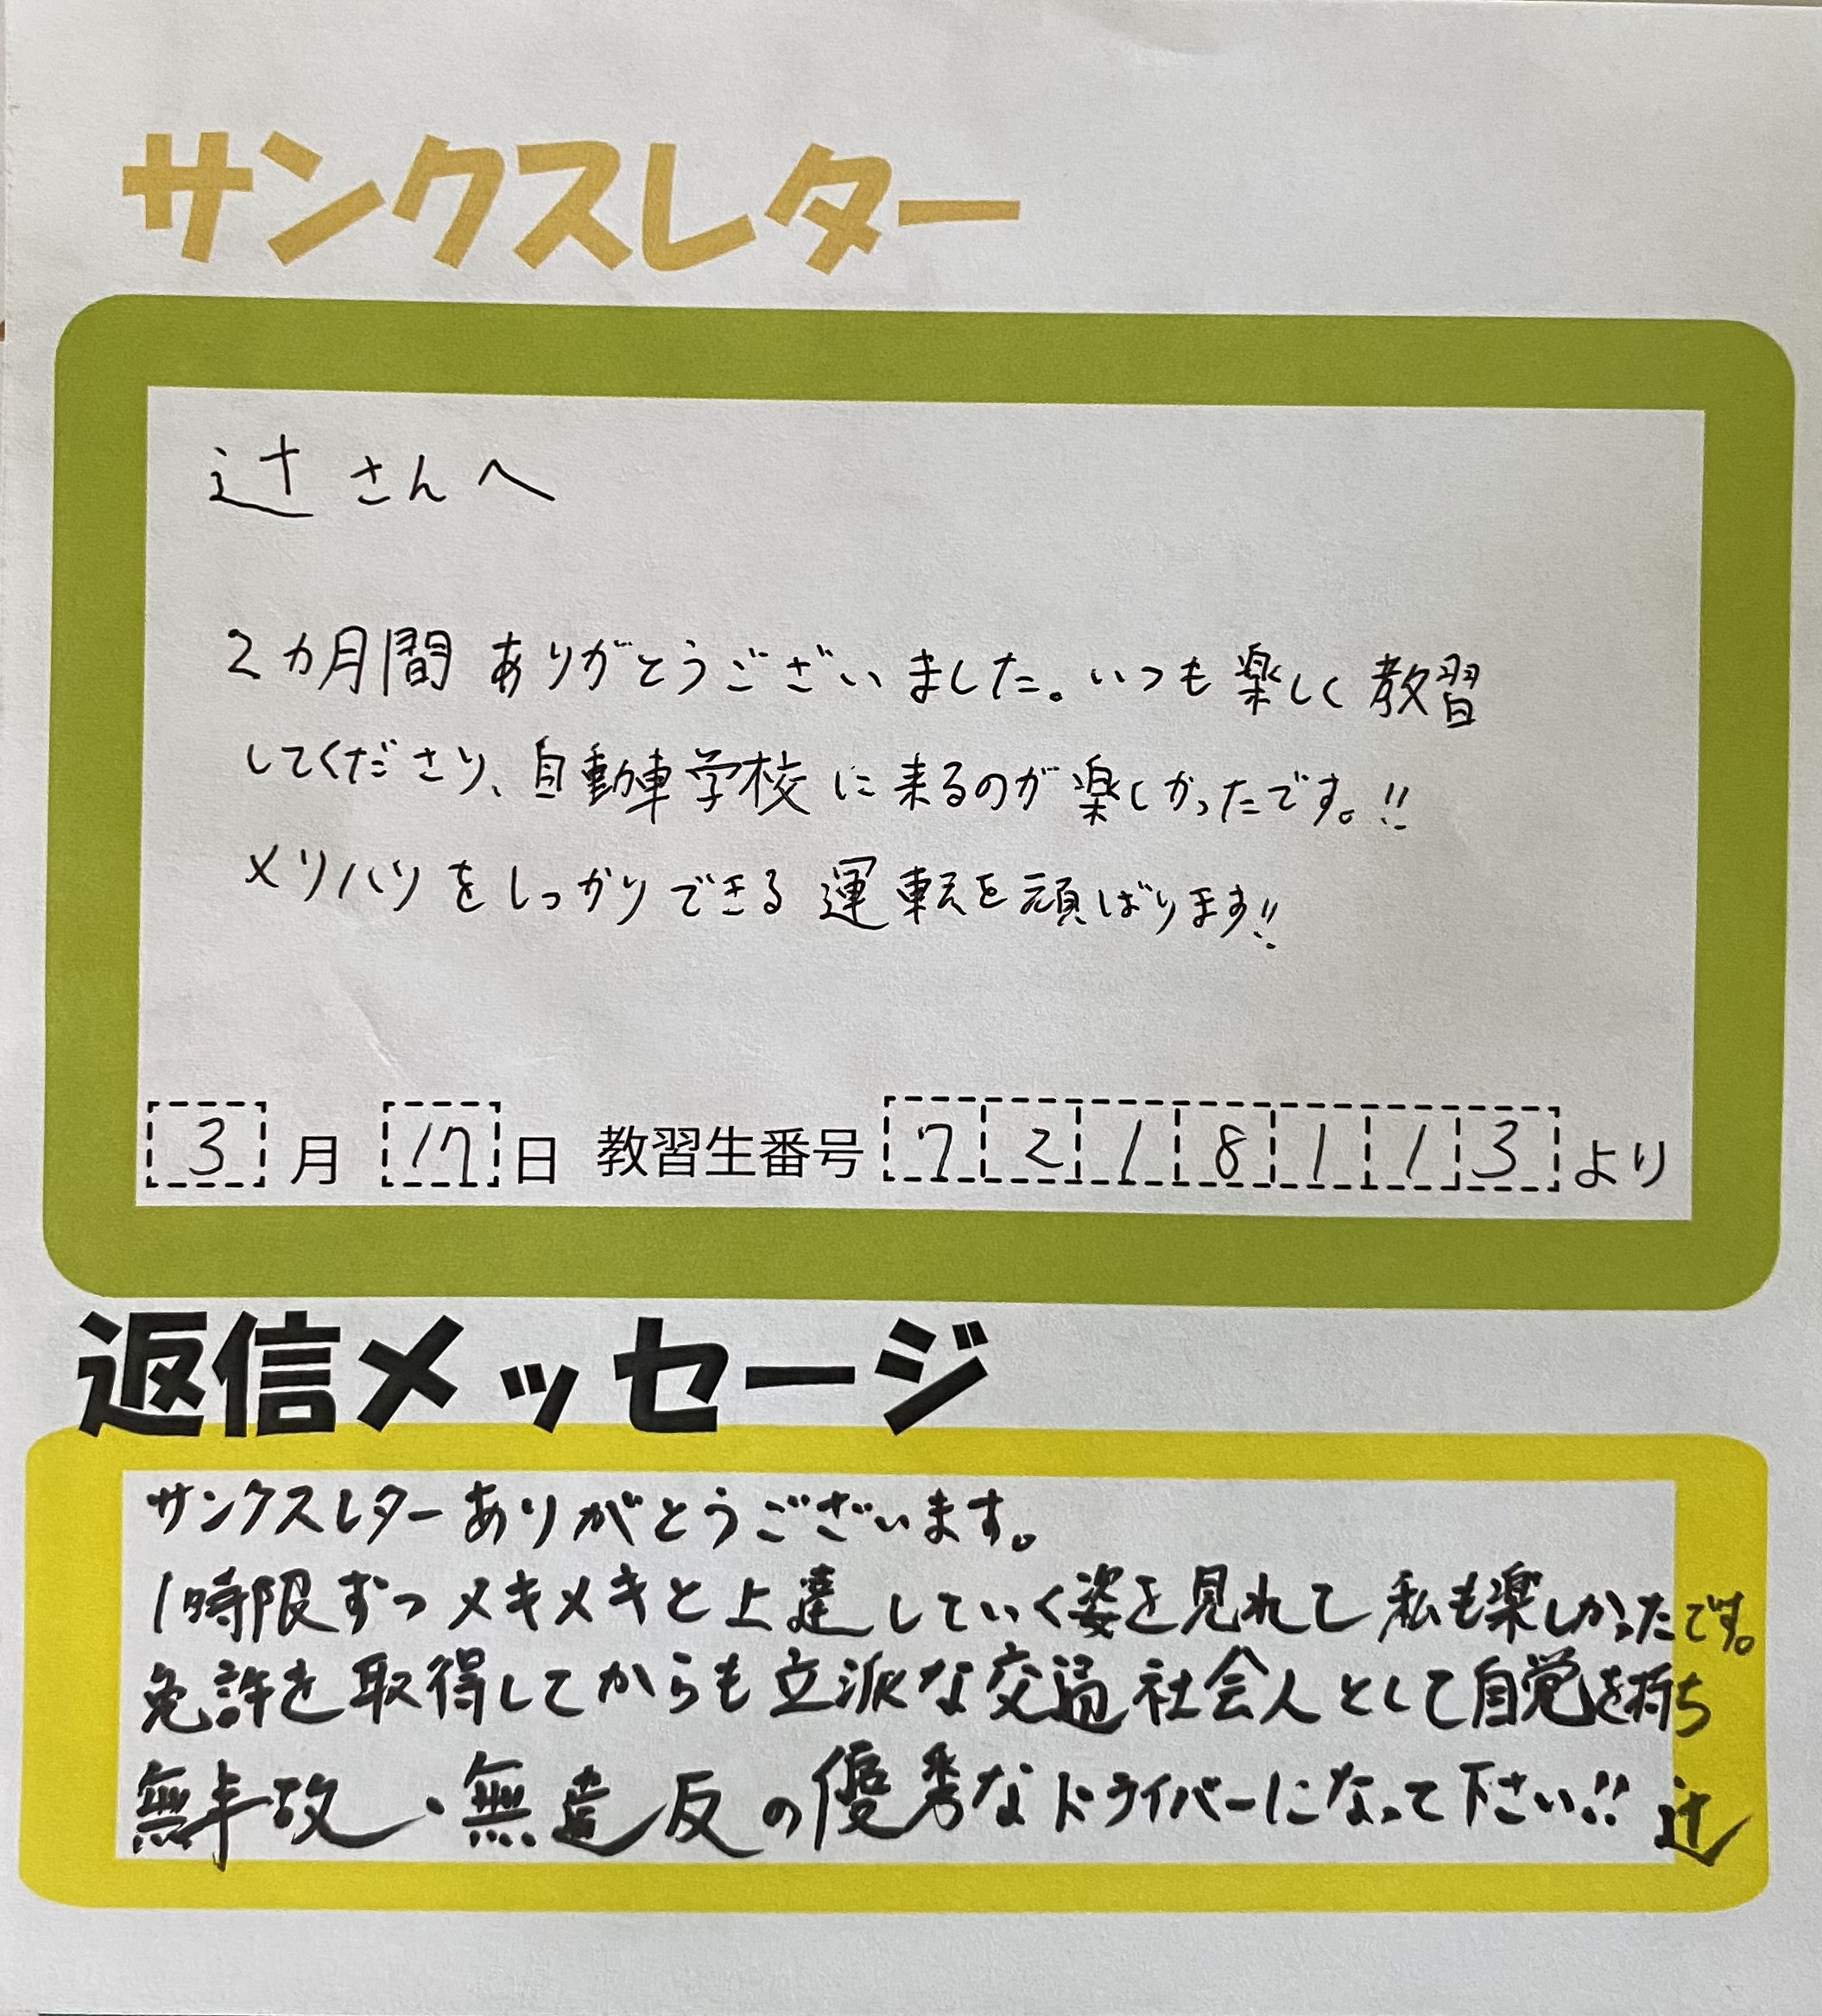 サンクスレター
辻さんへ
2カ月間ありがとうございました。いつも楽しく教習
してくださり、自動車学校に来るのが楽しかったです。!!
メリハリをしっかりできる運転を頑ばります!!
3月17日 教習生番号 7218113より
返信メッセージ
サンクスレターありがとうございます。
1時限ずつメキメキと上達していく姿を見れて私も楽しかったです。
免許を取得してからも立派な交通社会人として自覚を持ち
無事故・無違反の優秀なドライバーになって下さい!! 辻